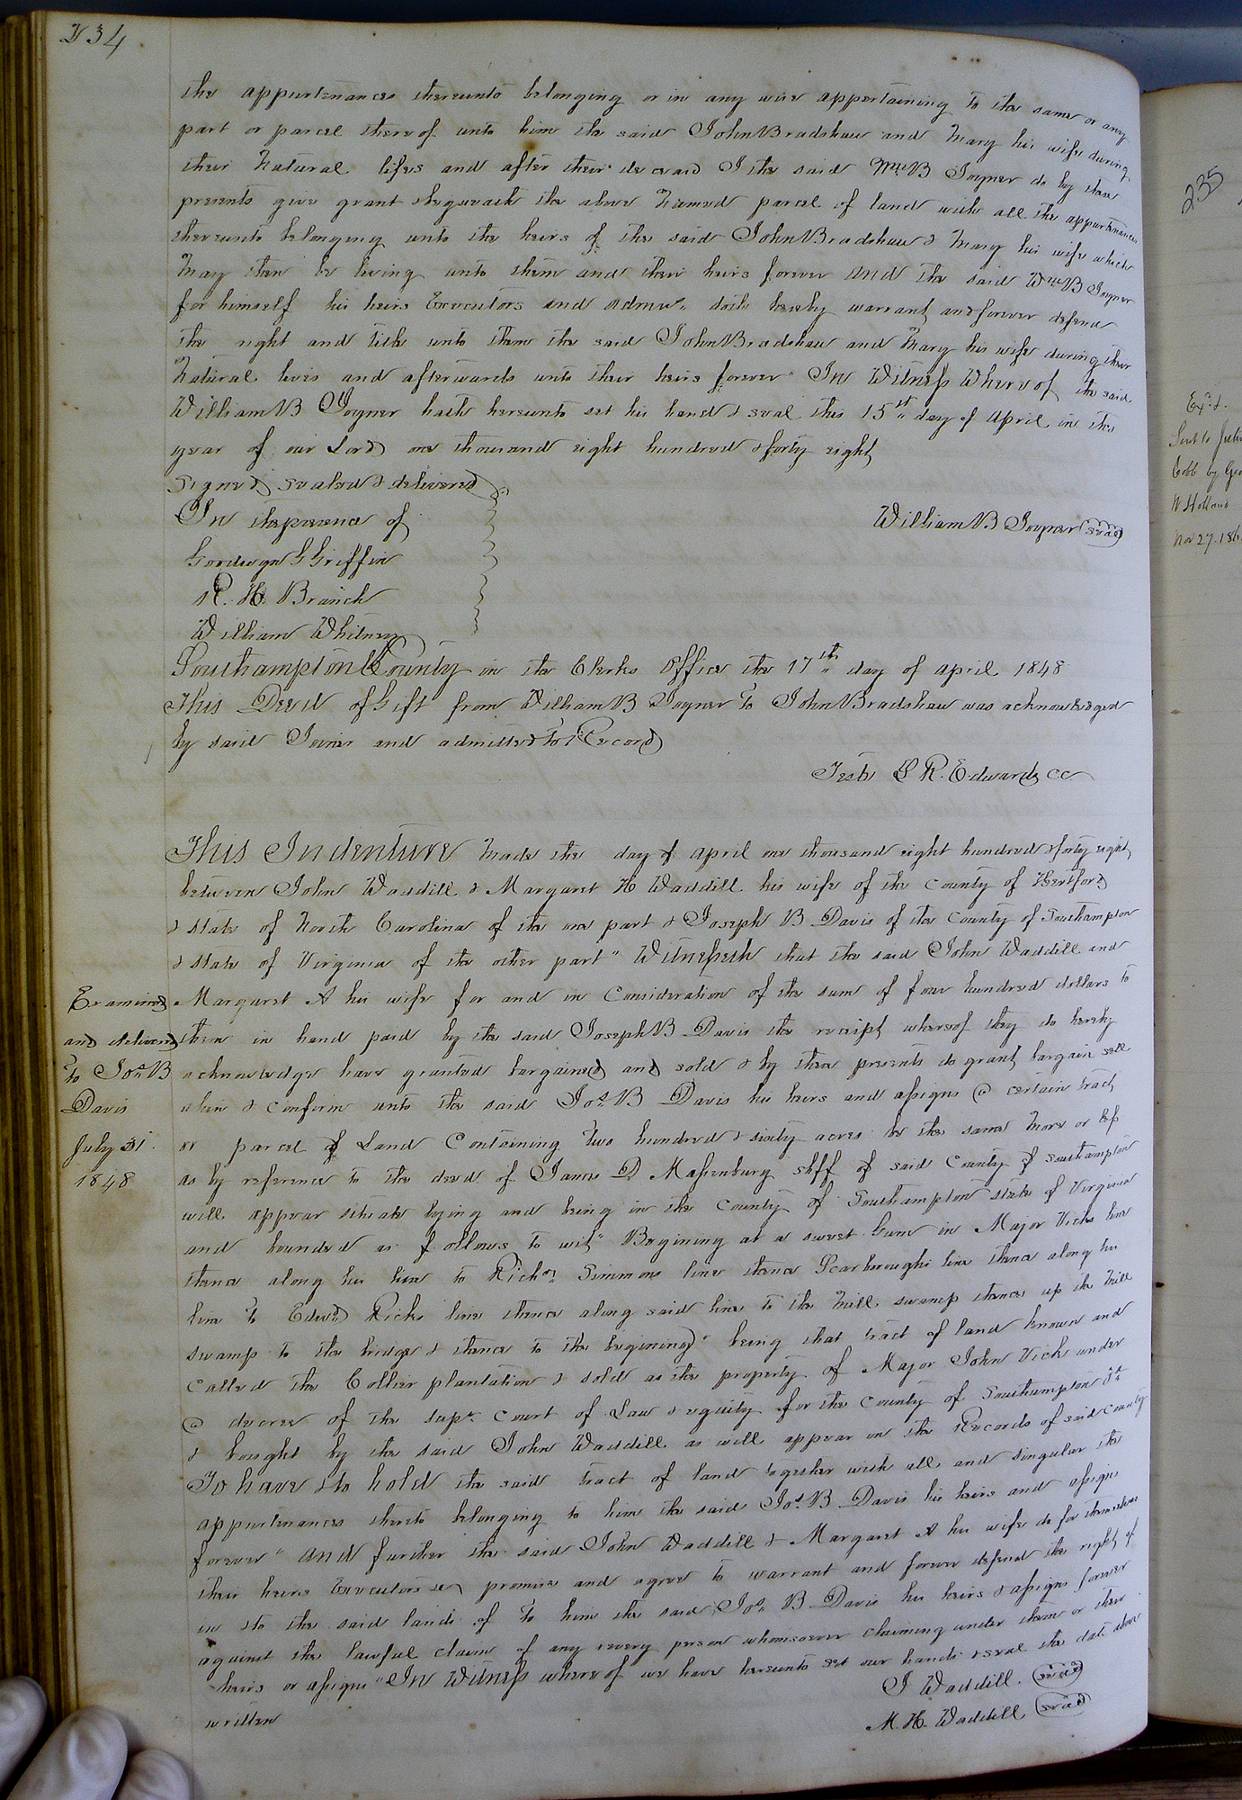 234
the appurtenances thereunto belonging or in any wise appertaining to the same or any
part or parcel thereof unto him the said John Bradshaw and Mary his wife during
their Natural lifes and after their decease I the said Wm B Joyner do by these
presents give grant & bequeath the above Named parcel of land with all the appurtenances
thereunto belonging unto the heirs of the said John Bradshaw & Mary his wife which
May then be living unto them and their heirs forever and the said Wm B Joyner
for himself his heirs Executors and admrs. doth hereby warrant and forever defend
the right and title unto them the said John Bradshaw and Mary his wife during their
Natural lives and afterwards unto their heirs forever In Witness Whereof the said
William B Joyner hath hereunto set his hand & seal this 15th day of April in the
year of our Lord one thousand eight hundred & forty eight
Signed sealed & delivered
In the presence of
William B Joyner (seal)
G Griffin
R. H. Branch
William Whitney
Southampton County in the Clerks Office the 17th day of april 1848
This Deed of Gift from William B Joyner to John Bradshaw was acknowledged
by said Joiner and admitted to Record
Teste L R. Edwards CC
This Indenture Made the day of April one thousand eight hundred & forty eight
between John Waddill & Margaret H Waddill his wife of the County of Hertford
& State of North Carolina of the one part & Joseph B Davis of the County of Southampton
& State of Virginia of the other part" Witnesseth that the said John Waddill and
Margaret H his wife for and in Consideration of the sum of four hundred dollars to
them in hand paid by the said Joseph B Davis the receipt whereof they do hereby
acknowledge have granted bargained and sold & by these presents do grant bargain sell
alien & confirm unto the said Jos. B Davis his heirs and assigns a certain tract
or parcel of Land Containing Two hundred & sixty acres be the same More or less
as by reference to the deed of James D Massenburg shff of said County of Southampton
will appear situate lying and being in the County of Southampton State of Virginia
and bounded as follows to wit" Begining at a sweet Gum in Major Vicks line
thence along his line to Richd. Simmons line thence Scarboroughs line thence along his
line to Edwd Ricks line thence along said line to the mill swamp thence up the Mill
swamp to the bridge & thence to the begining" being that tract of land known and
called the Collier plantation & sold as the property of Major John Vick under
a decree of the supr. Court of Law & equity for the County of Southampton &c
& bought by the said John Waddill as will appear on the Records of said County
To have & to hold the said tract of land together with all and singular the
appurtenances thereto belonging to him the said Jos. B Davis his heirs and assigns
forever" and further the said John Waddill & Margaret H his wife do for themselves
their heirs Executors &c promise and agree to warrant and forever defend the right of
in & to the said land of to him the said Jos. B Davis his heirs & assigns forever
against the lawful claim of any & every person whomsoever claiming under them or their
heirs or assigns" In Witness whereof we have hereunto set our hands & seal the date above
written
J Waddill (seal)
M. H. Waddill (seal)
Examined
and delivered
to Jos. B
Davis
July 31st
1848
235
Exd. &
Sent to
Cobb by Geo
W Holland
Nov 27. 186